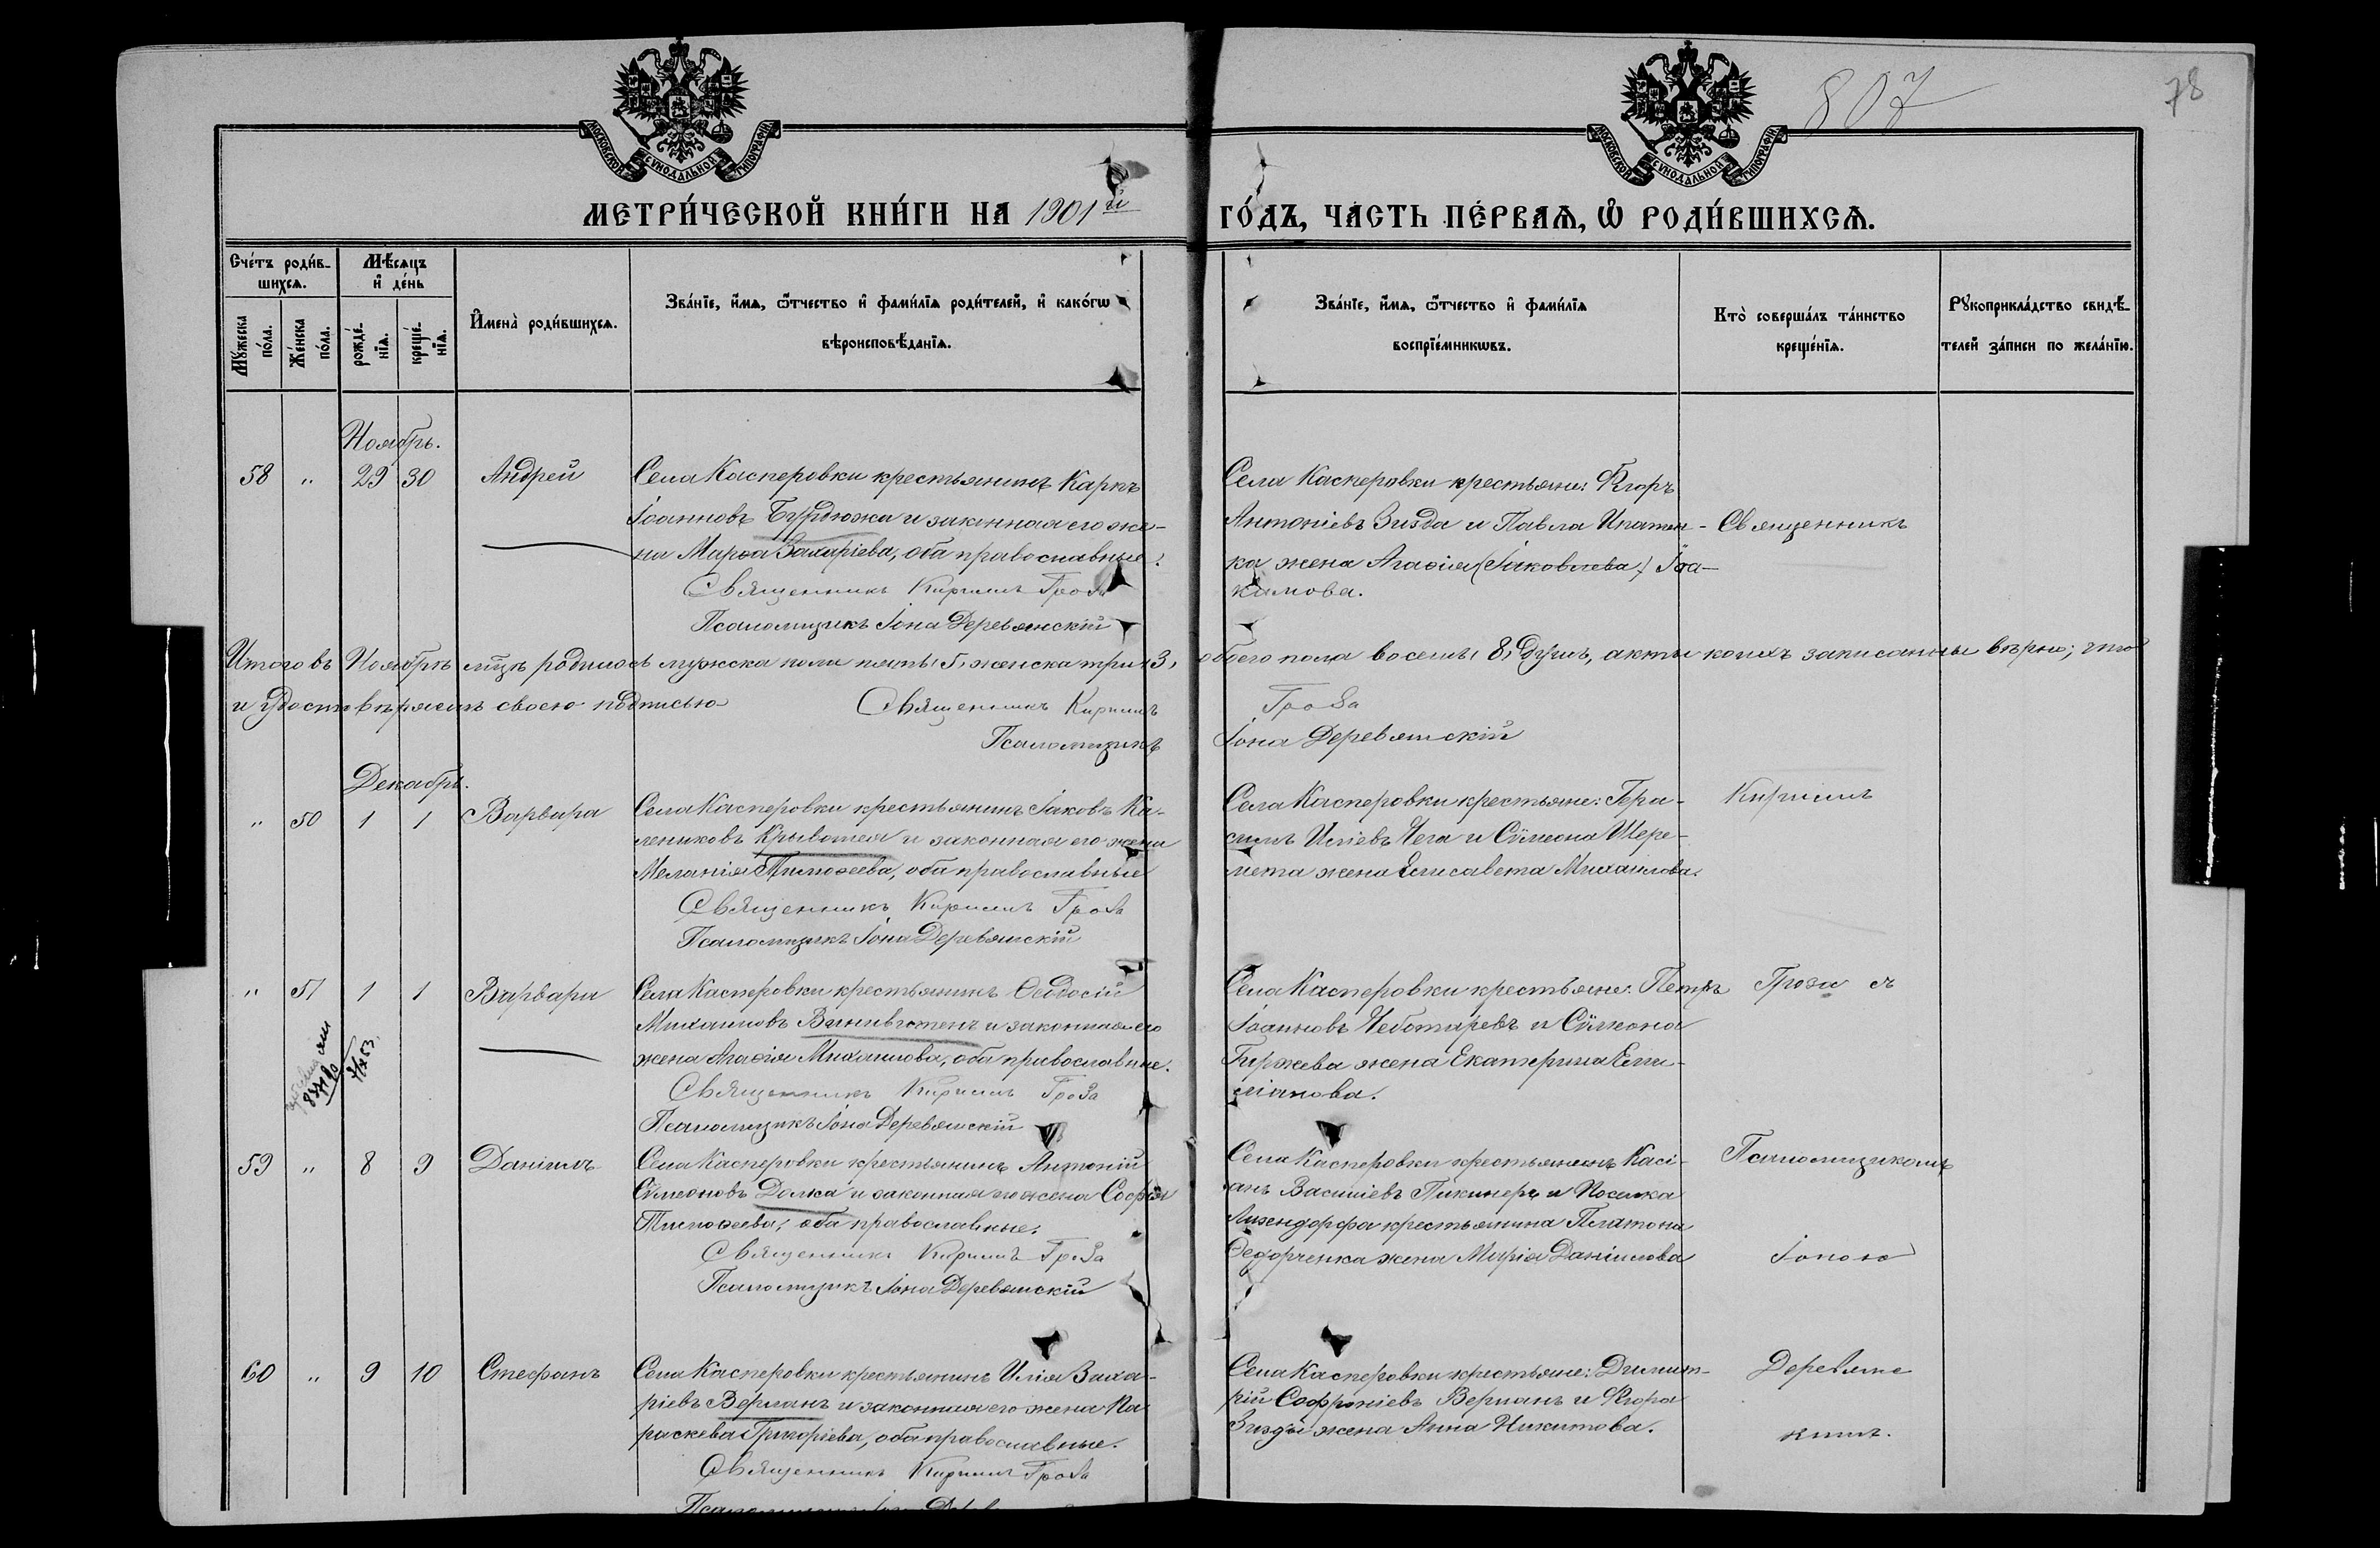 807
78
МОСКОВСКОЙ СѴНОДАЛЬНОЙ ТИПОГРАФІИ
МОСКОВСКОЙ СѴНОДАЛЬНОЙ ТИПОГРАФІИ
МЕТРИ́ЧЕСКОЙ КНИ́ГИ НА 1901й ГО́ДЪ, ЧА́СТЬ ПЕ́РВАѦ, Ѡ҆ РОДИ́ВШИХСѦ.
Сче́тъ роди́в-
шихсѧ.
Мꙋ́жеска по́ла.
Же́нска по́ла.
Мѣ́сѧцъ
и҆ де́нь
рожде́-
нїѧ.
креще́-
нїѧ.
И҆мена̀ роди́вшихсѧ.
Зва́нїе, и҆́мѧ, ѻ҆́тчество и҆ фами́лїѧ роди́телей, и҆ како́гѡ
вѣроисповѣ́данїѧ.
Зва́нїе, и҆́мѧ, ѻ҆́тчество и҆ фами́лїѧ
воспрїе́мникѡвъ.
Кто̀ соверша́лъ та́инство
креще́нїѧ.
Рꙋкоприкла́дство свидѣ́-
телей за́писи по жела́нїю.
Ноябрь.
58 " 29 30 Андрей
Села Касперовки крестьянинъ Карпъ
Іоанновъ Бурдюжа и законная его же-
на Марѳа Захаріева, оба православные.
Священникъ Кириллъ Гроза
Псаломщикъ Іона Деревянскій
Села Касперовки крестьяне: Егоръ
Антоніевъ Зизда и Павла Ипатен-
ка жена Агаѳія (Іаковлева) Іоа-
кимова.
Священникъ
Итого въ Ноябрѣ мцѣ родилось мужска пола пять, 5, женска три, 3, обоего пола восемь, 8, душъ, акты коихъ записанны вѣрно; что
и удостовѣряемъ своею подписью Священникъ Кириллъ Гроза
Псаломщикъ Іона Деревянскій
Декабрь.
" 50 1 1 Варвара
Села Касперовки крестьянинъ Іаковъ Ка-
лениковъ Крывотея и законная его жена
Меланія Тимоѳеева, оба православные
Священникъ Кириллъ Гроза
Псаломщикъ Іона Деревянскій
Села Касперовки крестьяне: Гера-
симъ Иліевъ Чега и Сѵмеона Шере-
мета жена Елисавета Михаилова.
Кирилл
" 51 1 1 Варвара
Села Касперовки крестьянинъ Ѳеодосій
Михаиловъ и законная его
жена Агаѳія Михаилова, оба православные.
Священникъ Кириллъ Гроза
Псаломщикъ Іона Деревянскій
Села Касперовки крестьяне: Петръ
Іоанновъ Чеботаревъ и Сѵмеона
Биржева жена Екатерина Еми-
ліанова.
Гроза съ
59 " 8 9 Даніилъ
Села Касперовки крестьянинъ Антоній
Сѵмеоновъ Долка и законная его жена Софія
Тимоѳеева, оба православные.
Священникъ Кириллъ Гроза
Псаломщикъ Іона Деревянскій
Села Касперовки крестьянинъ Касі-
анъ Василіевъ Пикинеръ и Поселка
крестьянина Платона
Ѳедорченка жена Марія Даніилова
Псаломщикомъ
Іоною
60 " 9 10 Стефанъ
Села Касперовки крестьянинъ Илія Заха-
ріевъ Верланъ и законная его жена Па-
раскева Григоріева, оба православные.
Священникъ Кириллъ Гроза
Села Касперовки крестьяне: Димит-
рій Софроніевъ Верланъ и Егора
Зизды жена Анна Никитова.
Деревянс
кимъ.